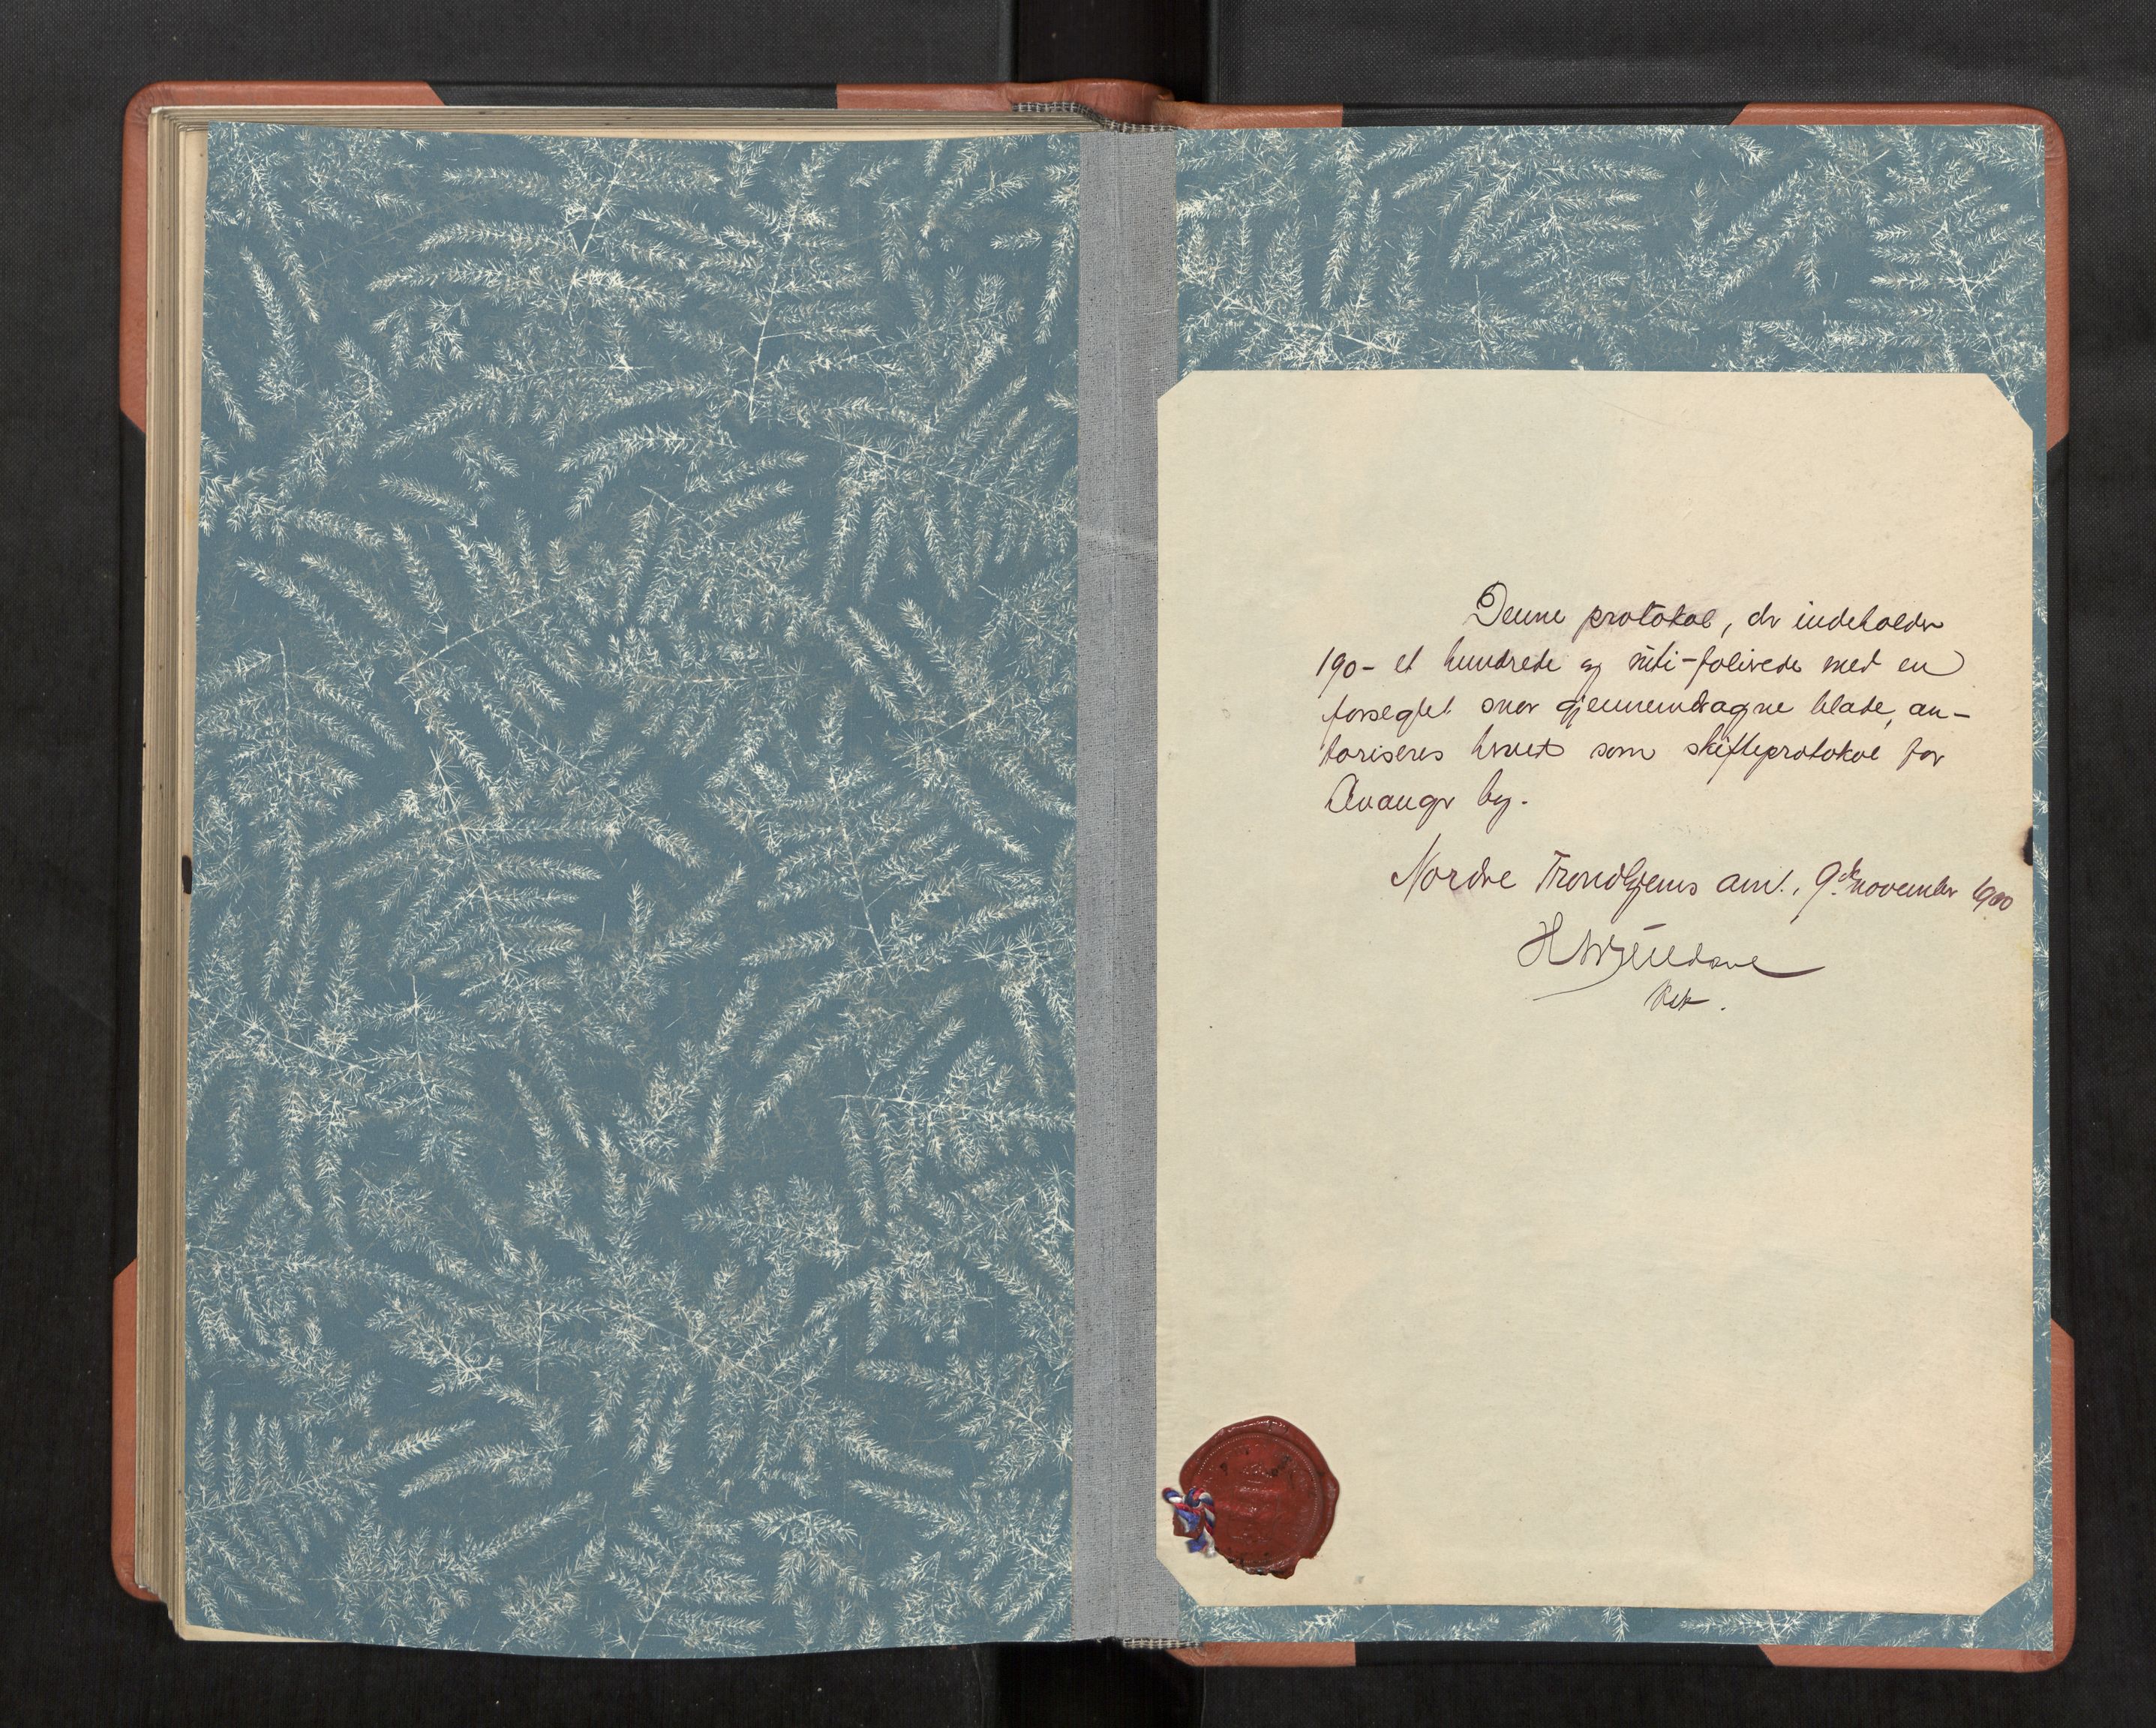 Denne protokol, der indeholder
190 - et hundrede og nitti - folierede med en
forseglet snor gjennemdragne blade, au-
toriseres herved som skifteprotokol for
Levanger by.
Nordre Trondhjems amt, 9de november 1900
Kst.